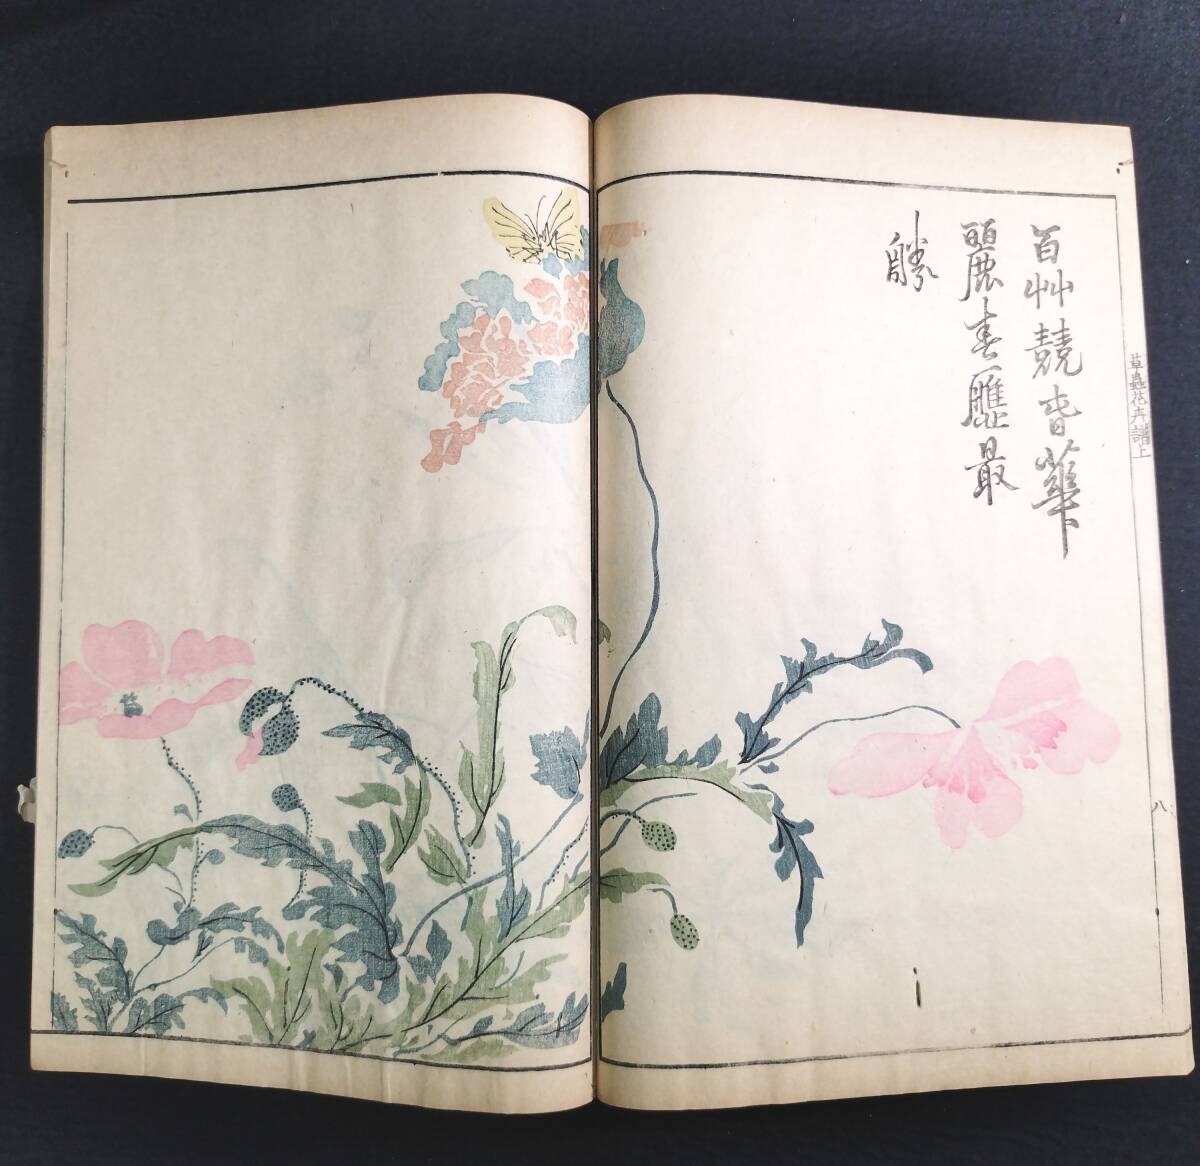 百艸競旾華
麗春應最
勝
草蟲花卉譜上
八